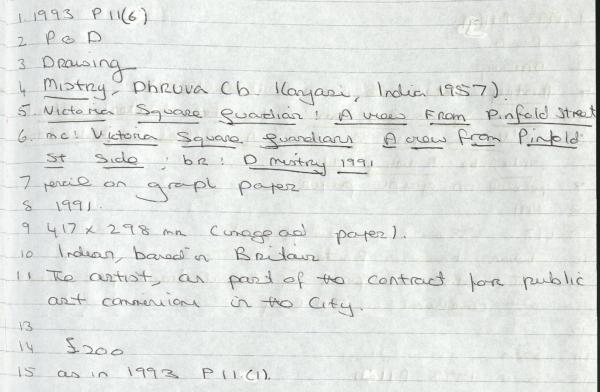 1 1993 P 11(6)
2 P & D
3 Drawing
4 Mistry, Dhruva (b Kanjari, India 1957).
5. Victoria Square guardian: A view From Pinfold Street
6. mc: Victoria Square guardians A view from Pinfold
St Side; br: D mistry 1991
7 pencil on graph paper
8 1991.
9 417 x 298 mm (image and paper).
10 Indian, based in Britain
11 The artist, as part of the contract for public
art commissions in the City.
13
14 £200
15 as in 1993 P 11 (1).